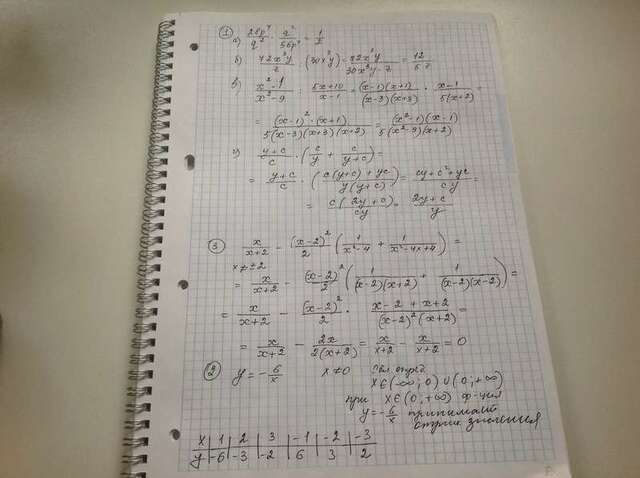 1 а) 28p⁴/q² · q²/56p⁴ = 1/2
б) 72x³y/z : (30x²y) = 72x³y/30x²y·z = 12/5z
в) x²-1/x²-9 : 5x+10/x-1 = (x-1)(x+1)/(x-3)(x+3) · x-1/5(x+2) =
= (x-1)²·(x+1)/5(x-3)(x+3)(x+2) = (x²-1)(x-1)/5(x²-9)(x+2)
г) y+c/c · (c/y + c/y+c) =
= y+c/c · (c(y+c)+yc/y(y+c)) = cy+c²+yc/cy =
= c(2y+c)/cy = 2y+c/y
3 x/x+2 - (x-2)²/2 (1/x²-4 + 1/x²-4x+4) =
x≠±2
= x/x+2 - (x-2)²/2 (1/(x-2)(x+2) + 1/(x-2)(x-2)) =
= x/x+2 - (x-2)²/2 · x-2+x+2/(x-2)²(x+2) =
= x/x+2 - 2x/2(x+2) = x/x+2 - x/x+2 = 0
2 y = -6/x x≠0
x∈(-∞;0)∪(0;+∞)
при x∈(0;+∞) ф-ция
y=-6/x принимает
значения
x 1 2 3 -1 -2 -3
y -6 -3 -2 6 3 2